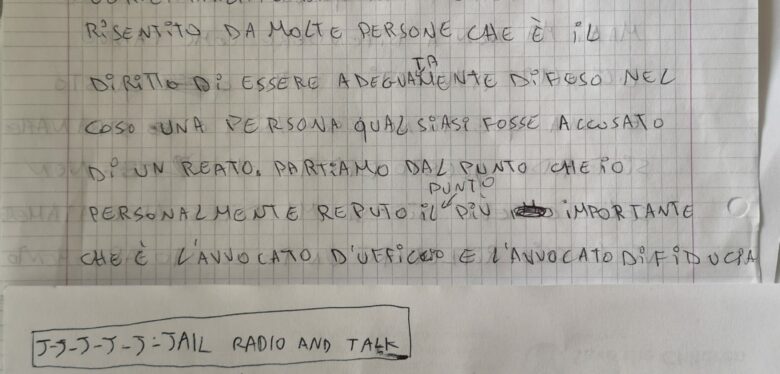 RISENTITO DA MOLTE PERSONE CHE È IL
DIRITTO DI ESSERE ADEGUATAMENTE DIFESO NEL
COSO UNA PERSONA QUALSIASI FOSSE ACCUSATO
DI UN REATO. PARTIAMO DAL PUNTO CHE IO
PERSONALMENTE REPUTO IL PUNTO PIÙ IMPORTANTE
CHE È L'AVVOCATO D'UFFICIO E L'AVVOCATO DI FIDUCIA
J-J-J-J-J=JAIL RADIO AND TALK